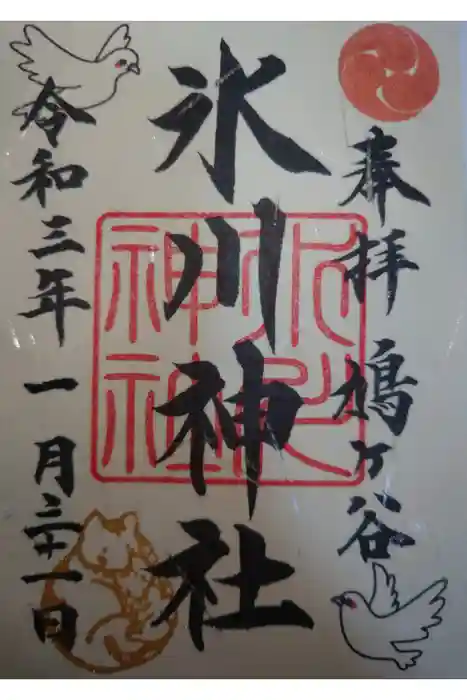 奉拝 鳩ヶ谷
氷川神社
令和三年一月三十一日
氷川神社